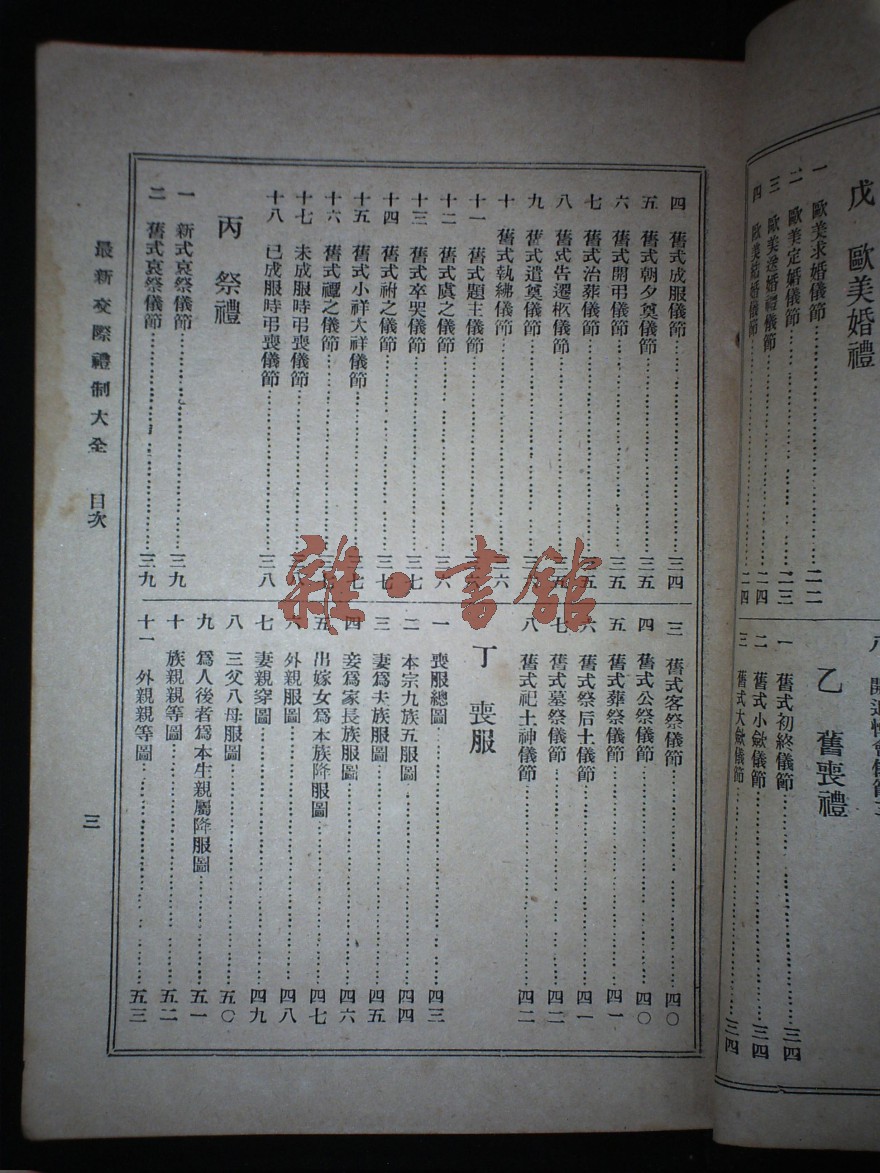 戊 歐美婚禮
一 歐美求婚儀節 二二
二 歐美定婚儀節 二三
三 歐美送婚禮儀節 二四
四 歐美結婚儀節 二四
乙 舊喪禮
一 舊式初終儀節 三四
二 舊式小斂儀節 三四
三 舊式大斂儀節 三四
四 舊式成服儀節 三四
五 舊式朝夕奠儀節 三五
六 舊式開弔儀節 三五
七 舊式治葬儀節 三五
八 舊式告遷柩儀節
九 舊式遣奠儀節
十 舊式執紼儀節 三六
十一 舊式題主儀節
十二 舊式虞之儀節 三六
十三 舊式卒哭儀節 三七
十四 舊式祔之儀節 三七
十五 舊式小祥大祥儀節
十六 舊式禫之儀節
十七 未成服時弔喪儀節
十八 已成服時弔喪儀節 三八
丙 祭禮
一 新式哀祭儀節 三九
二 舊式哀祭儀節 三九
三 舊式客祭儀節 四〇
四 舊式公祭儀節 四〇
五 舊式葬祭儀節 四一
六 舊式祭后土儀節 四一
七 舊式墓祭儀節 四二
八 舊式祀土神儀節 四二
丁 喪服
一 喪服總圖 四三
二 本宗九族五服圖 四四
三 妻爲夫族服圖 四五
四 妾爲家長族服圖 四六
五 出嫁女爲本族降服圖 四七
六 外親服圖 四八
七 妻親穿圖 四九
八 三父八母服圖 五〇
九 爲人後者爲本生親屬降服圖 五一
十 族親親等圖 五二
十一 外親親等圖 五三
最新交際禮制大全 目次
三
雜·書館